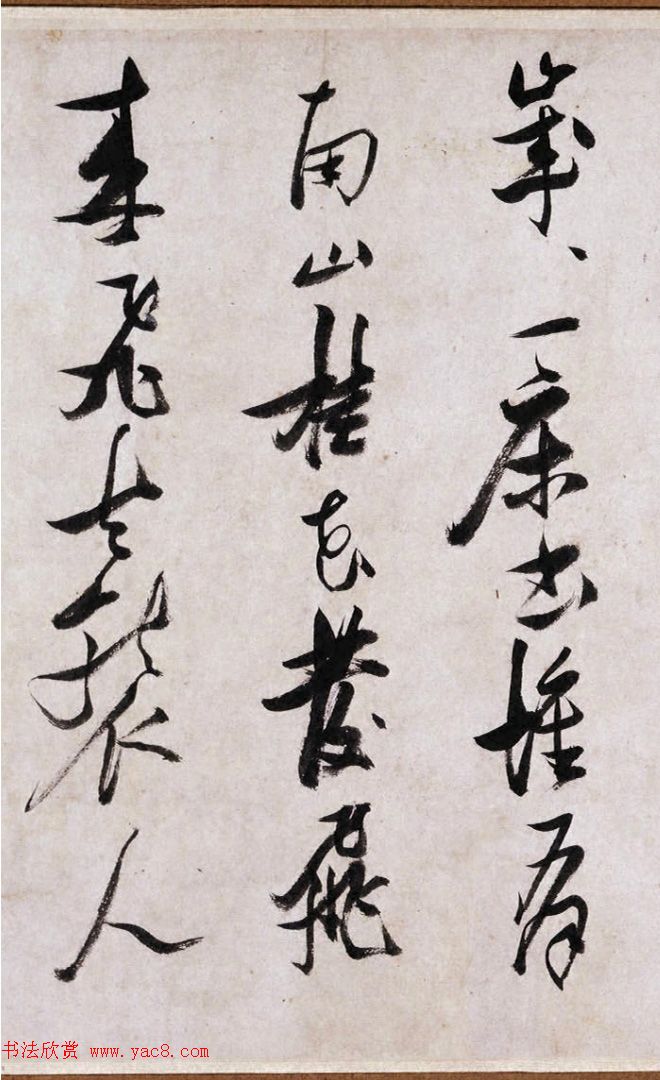 岁、一床书独有
南山桂花发飞
来飞去袭人
书法欣赏 www.yac8.com